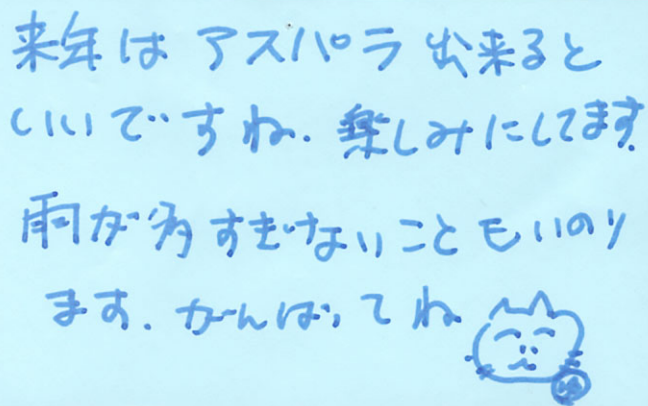 来年は アスパラ 出来ると
いいですね. 楽しみにしてます.
雨が多すぎないことも いのり
ます. がんばってね